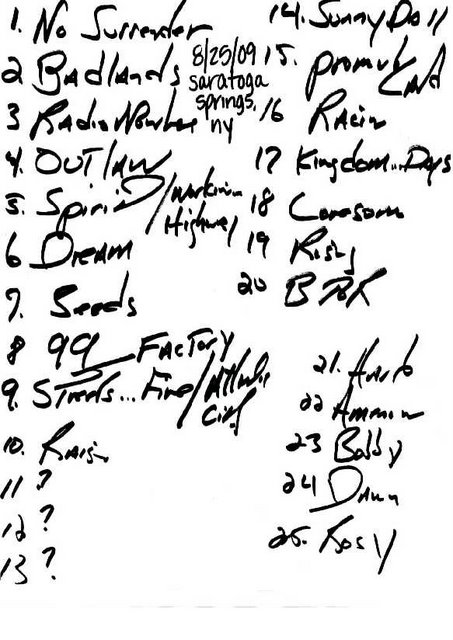 1. No Surrender
2 Badlands
3 Radio Nowhere
4. OUTlAW
5. Spirit/Workin
Highway
6 Dream
7. Seeds
8 99 FACTORY
9. STreets... Fire/Atlantic
City
10. Raisin
11 ?
12 ?
13 ?
8/25/09
saratoga
springs,
ny
14. Sunny Day
15. promised
LAND
16 Racin
17 Kingdom...Days
18 Lonesome
19 Rising
20 B
21. Hard
22 American
23 Bobby
24 Dawn
25. Rosy